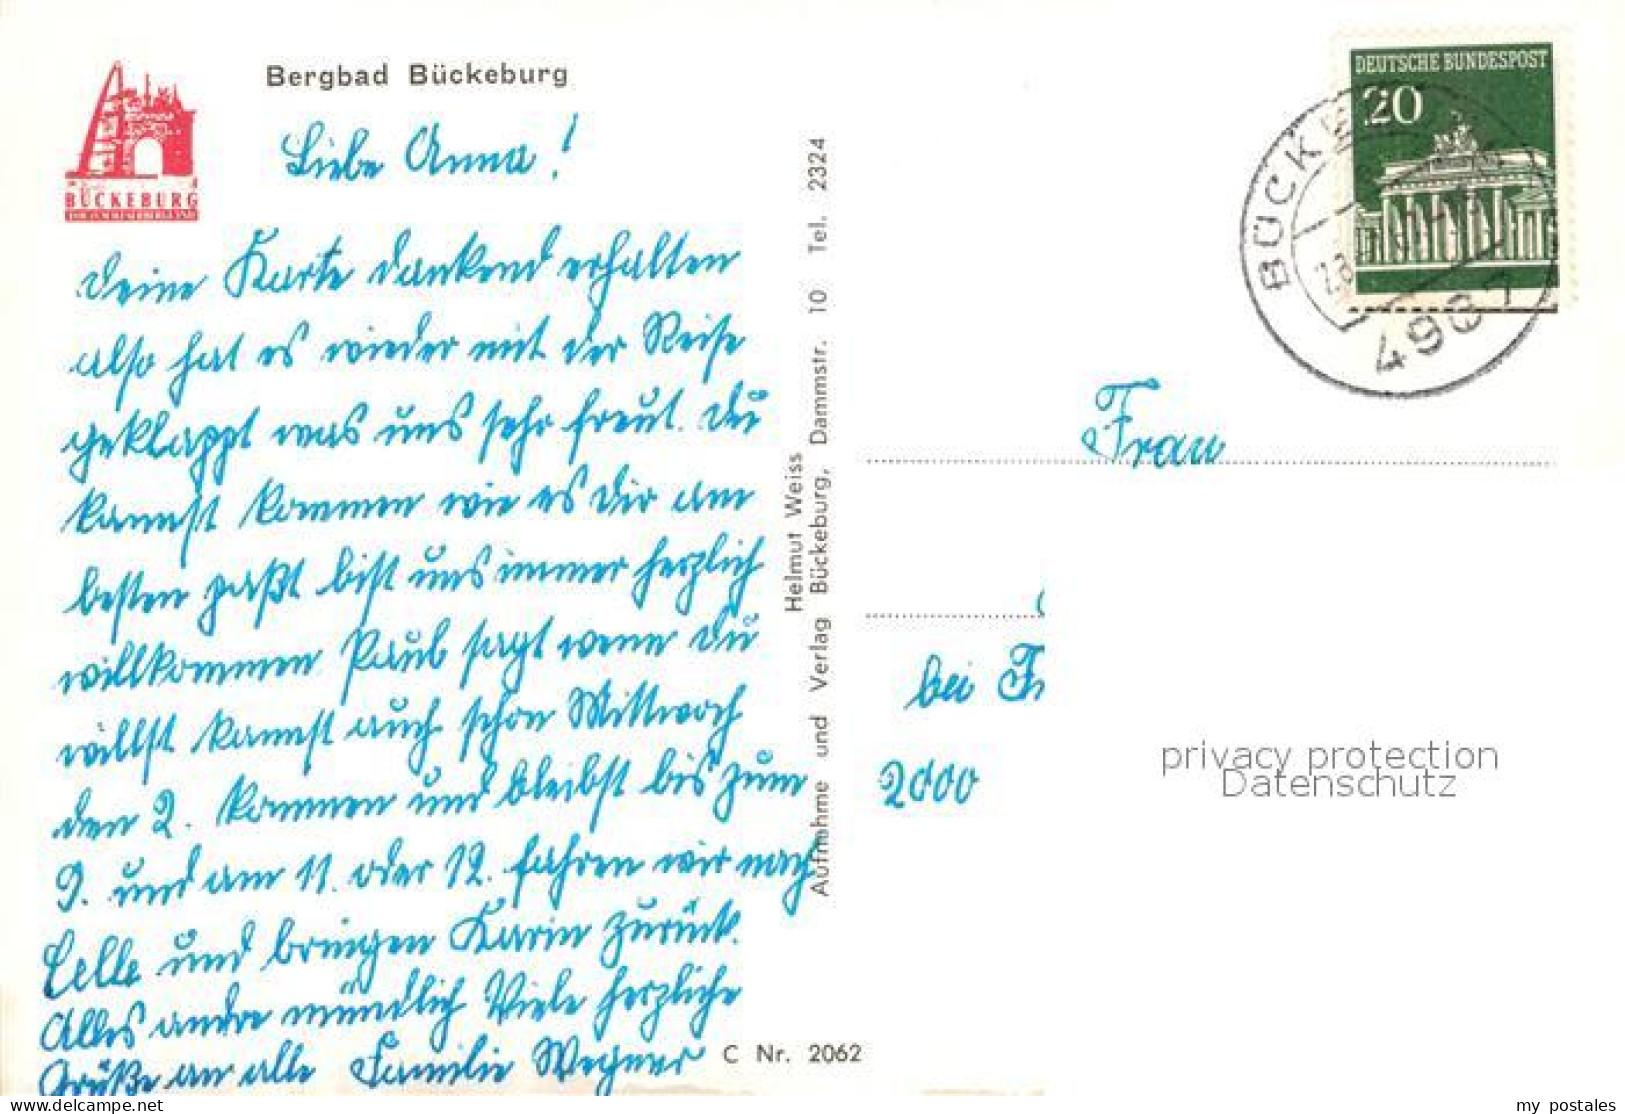 Bergbad Bückeburg
BÜCKEBURG
Liebe Anna!
Deine Karte dankend erhalten
also hat es wieder mit der Reise
geklappt was uns sehr freut. Du
kannst kommen wie es Dir am
besten paßt bist uns immer herzlich
willkommen Paul sagt wenn Du
willst kannst auch schon Mittwoch
den 2. kommen und bleibst bis zum
9. und am 11. oder 12. fahren wir nach
Celle und bringen Karin zurück.
Alles andre mündlich Viele herzliche
Grüße an alle Familie Wegner
C Nr. 2062
Helmut Weiss
Aufnahme und Verlag Bückeburg, Dammstr. 10 Tel. 2324
DEUTSCHE BUNDESPOST
20
4967
Frau
bei
2000
privacy protection
Datenschutz
www.delcampe.net
my_postales